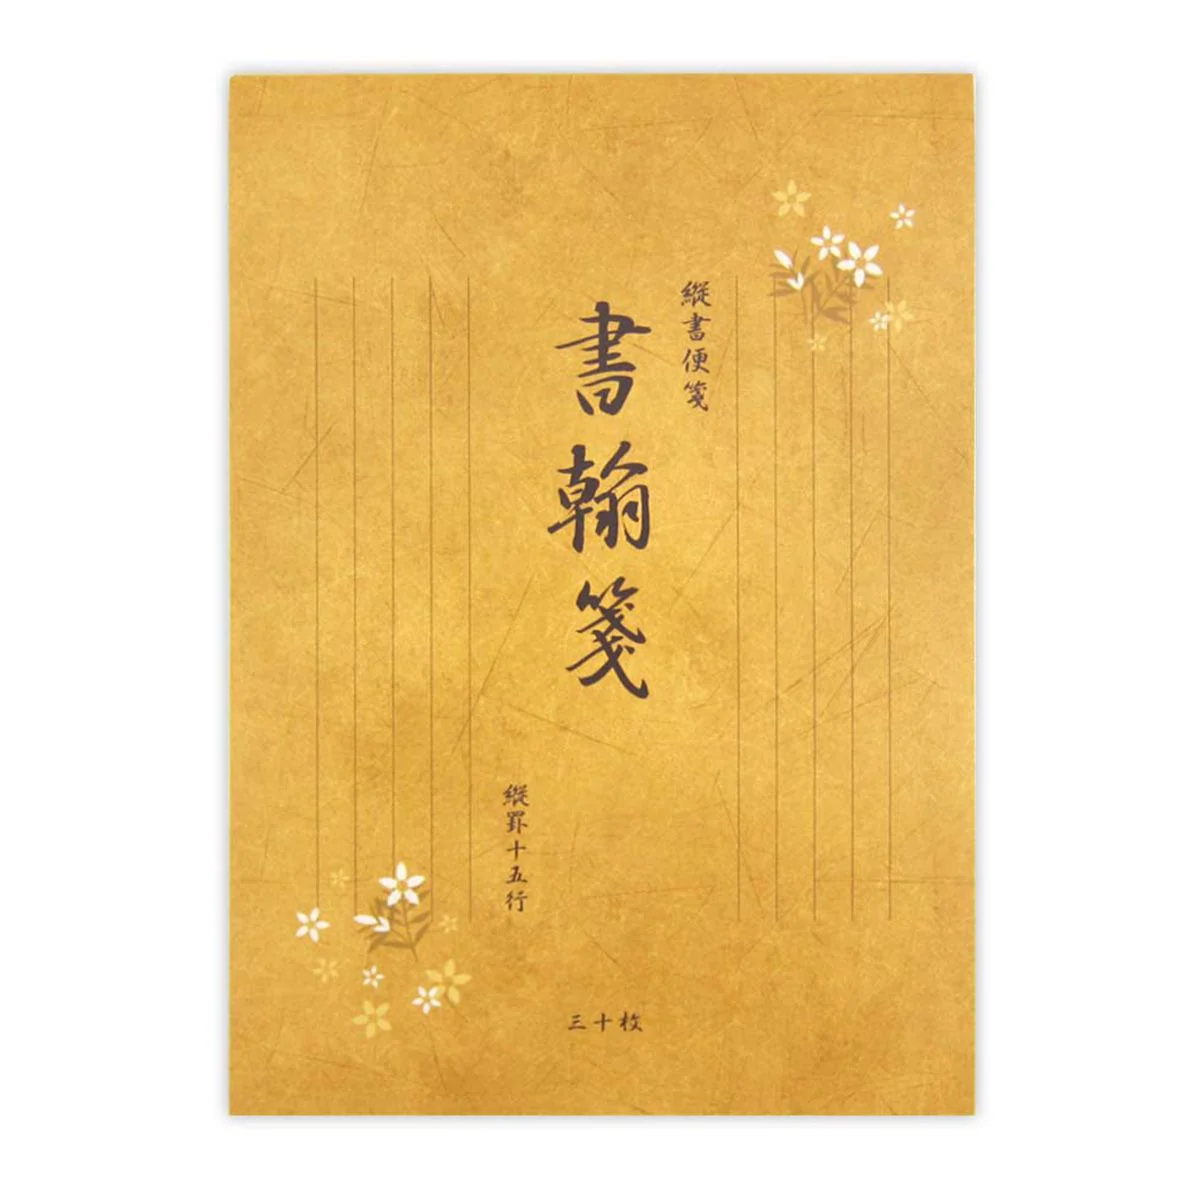 縱書便箋
書翰箋
縱罫十五行
三十枚